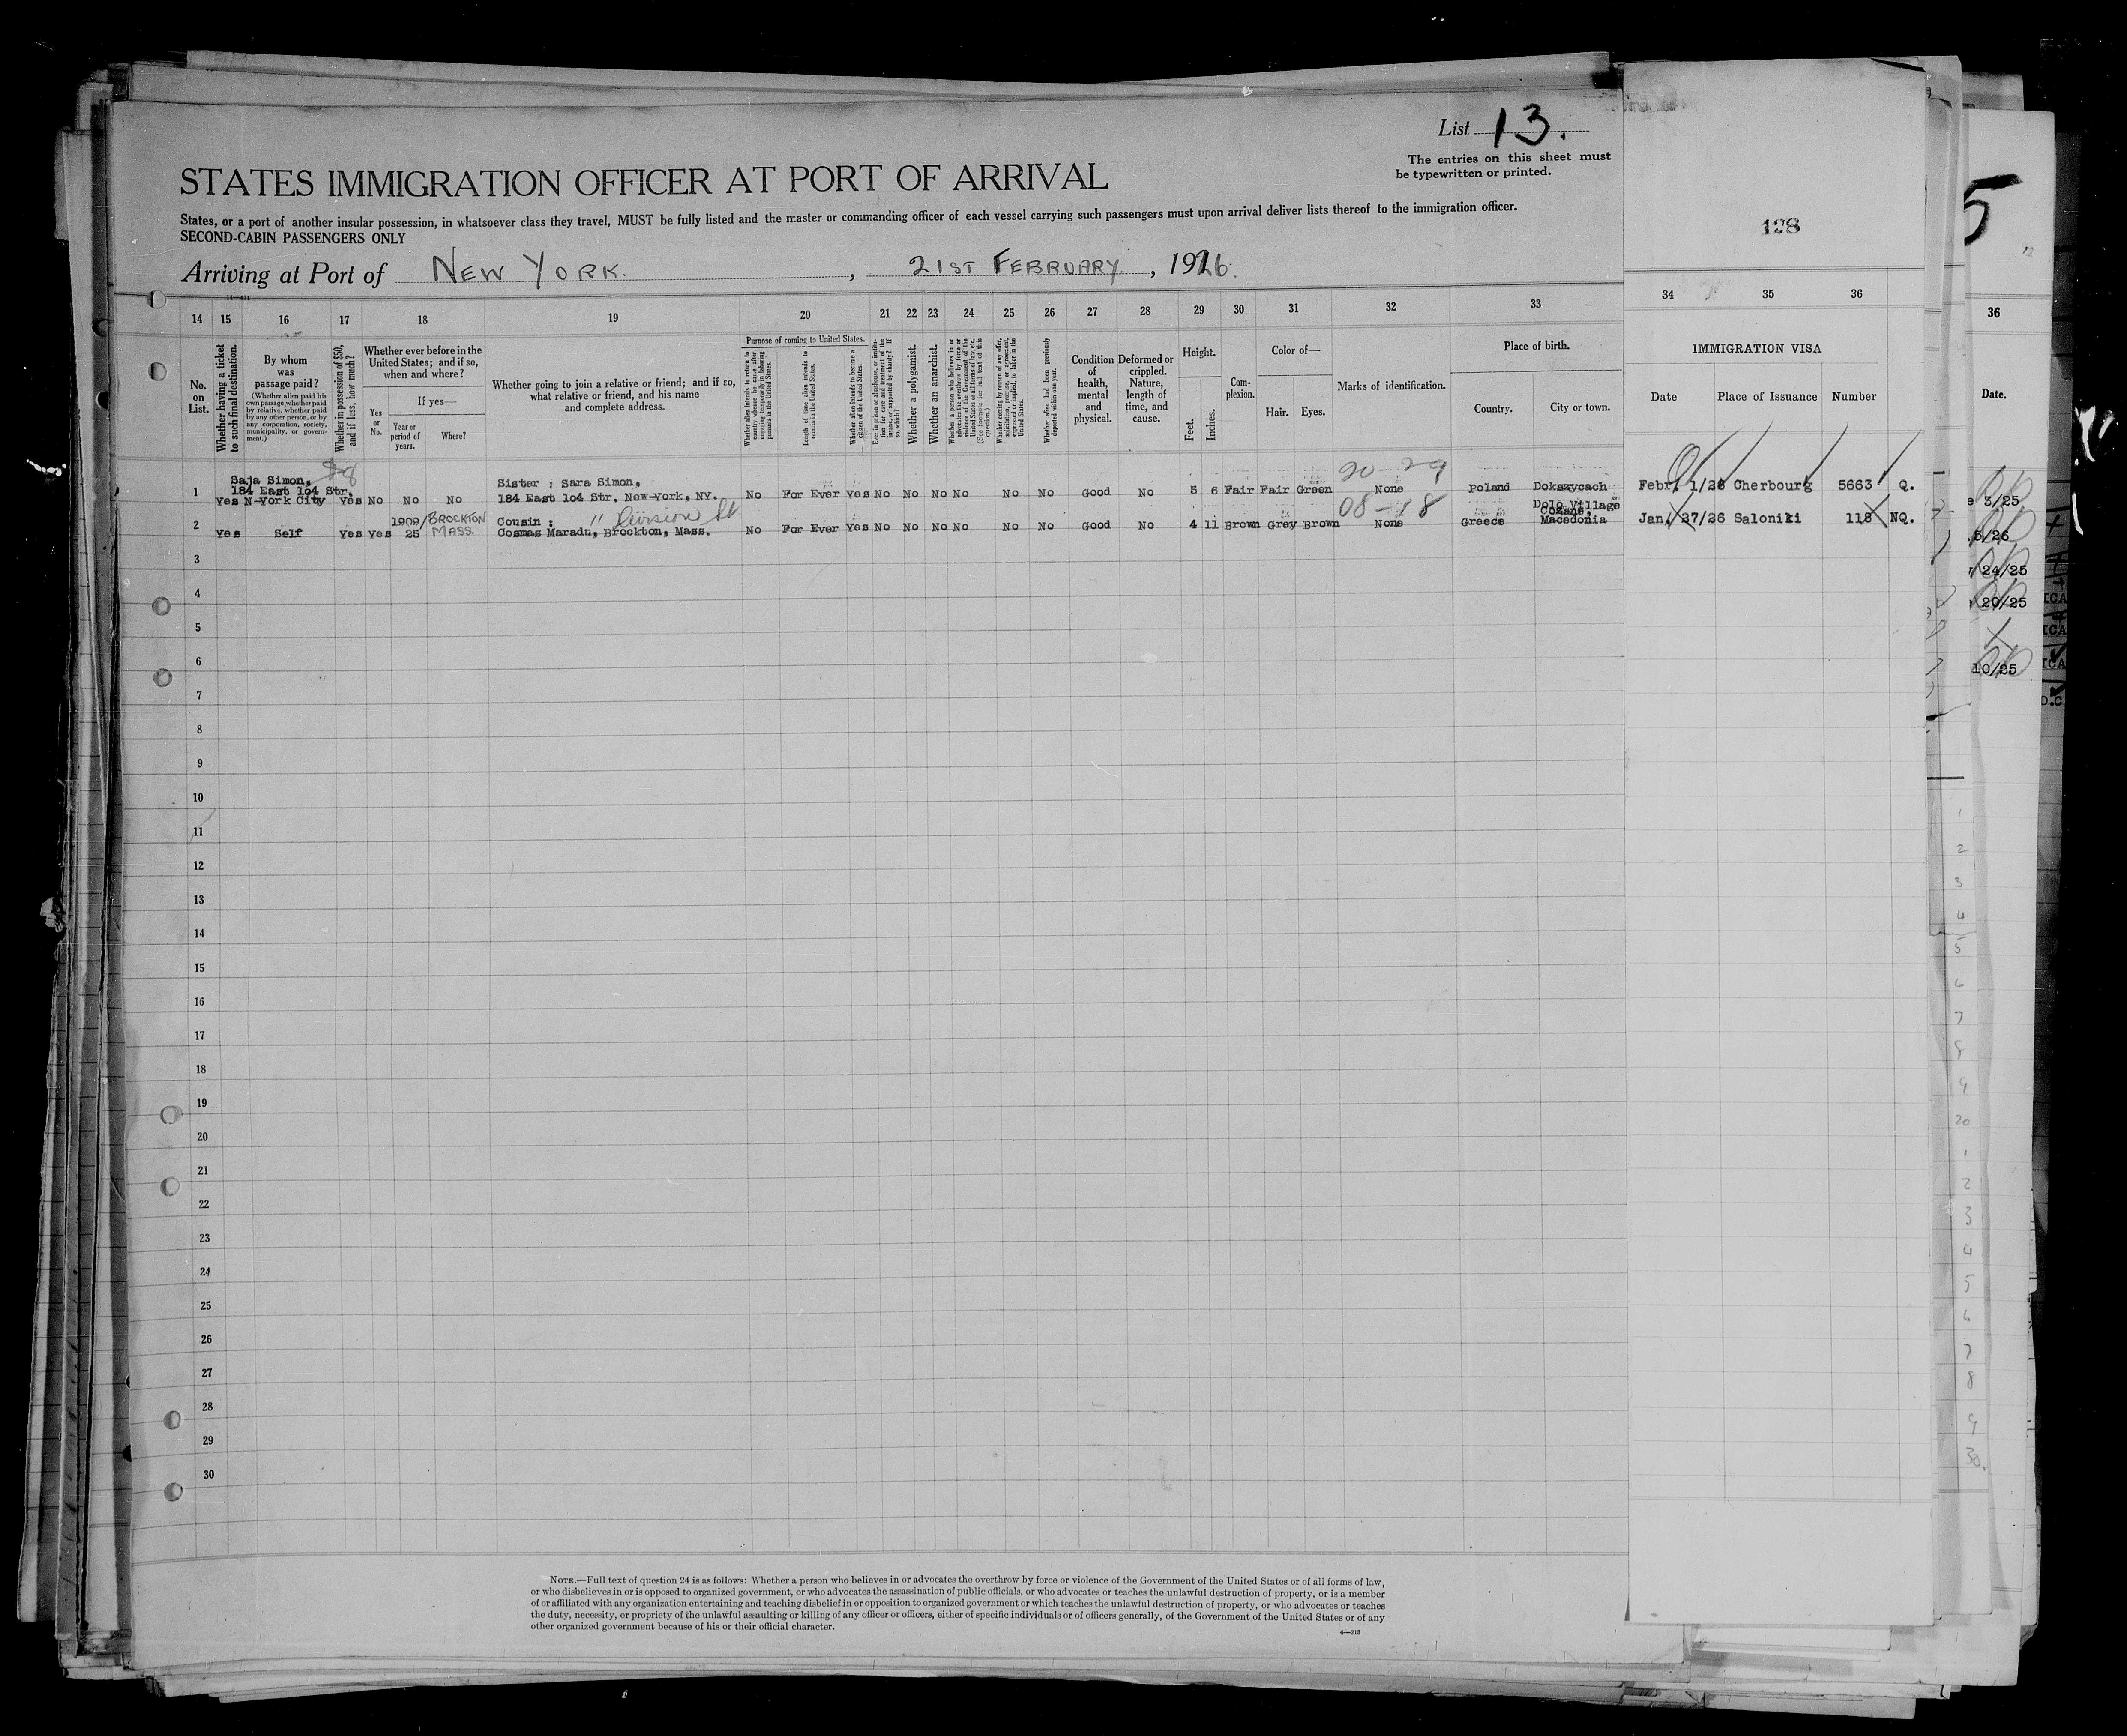 List 13.
The entries on this sheet must
be typewritten or printed.
STATES IMMIGRATION OFFICER AT PORT OF ARRIVAL
States, or a port of another insular possession, in whatsoever class they travel, MUST be fully listed and the master or commanding officer of each vessel carrying such passengers must upon arrival deliver lists thereof to the immigration officer.
SECOND-CABIN PASSENGERS ONLY
Arriving at Port of NEW YORK. , 21ST FEBRUARY , 1926.
128
5
14 15 16 17 18 19 20 21 22 23 24 25 26 27 28 29 30 31 32 33 34 35 36
36
No.
on
List.
Whether having a ticket
to such final destination.
By whom
was
passage paid?
(Whether alien paid his
own passage, whether paid
by relative, whether paid
by any other person, or by
any corporation, society,
municipality, or govern-
ment.)
Whether in possession of $50,
and if less, how much?
Whether ever before in the
United States; and if so,
when and where?
Yes
or
No.
If yes—
Year or
period of
years.
Where?
Whether going to join a relative or friend; and if so,
what relative or friend, and his name
and complete address.
Purpose of coming to United States.
Length of time alien intends to
remain in the United States.
Whether alien intends to become a
citizen of the United States.
Whether a polygamist.
Whether an anarchist.
Whether alien had been previously
deported within one year.
Condition
of
health,
mental
and
physical.
Deformed or
crippled.
Nature,
length of
time, and
cause.
Height.
Feet.
Inches.
Com-
plexion.
Color of—
Hair. Eyes.
Marks of identification.
Place of birth.
Country. City or town.
IMMIGRATION VISA
Date Place of Issuance Number
Date.
Saja Simon, $8
184 East 104 Str.
Sister : Sara Simon,
20 29
1 Yes N-York City Yes No No No 184 East 104 Str. New-York, NY. No For Ever Yes No No No No No No Good No 5 6 Fair Fair Green None Poland Dokszycach Febr. 1/26 Cherbourg 5663 Q.
1909/ BROCKTON Cousin : " Division St
08-18
Dolo Village
Cozane,
2 Yes Self Yes Yes 25 MASS. Cosmas Maradn, Brockton, Mass. No For Ever Yes No No No No No No Good No 4 11 Brown Grey Brown None Greece Macedonia Jan. 27/26 Saloniki 118 NQ.
3
4
5
6
7
8
9
10
11
12
13
14
15
16
17
18
19
20
21
22
23
24
25
26
27
28
29
30
3/25
5/26
24/25
20/25
10/25
NOTE.—Full text of question 24 is as follows: Whether a person who believes in or advocates the overthrow by force or violence of the Government of the United States or of all forms of law,
or who disbelieves in or is opposed to organized government, or who advocates the assassination of public officials, or who advocates or teaches the unlawful destruction of property, or is a member
of or affiliated with any organization entertaining and teaching disbelief in or opposition to organized government or which teaches the unlawful destruction of property, or who advocates or teaches
the duty, necessity, or propriety of the unlawful assaulting or killing of any officer or officers, either of specific individuals or of officers generally, of the Government of the United States or of any
other organized government because of his or their official character.
4—213